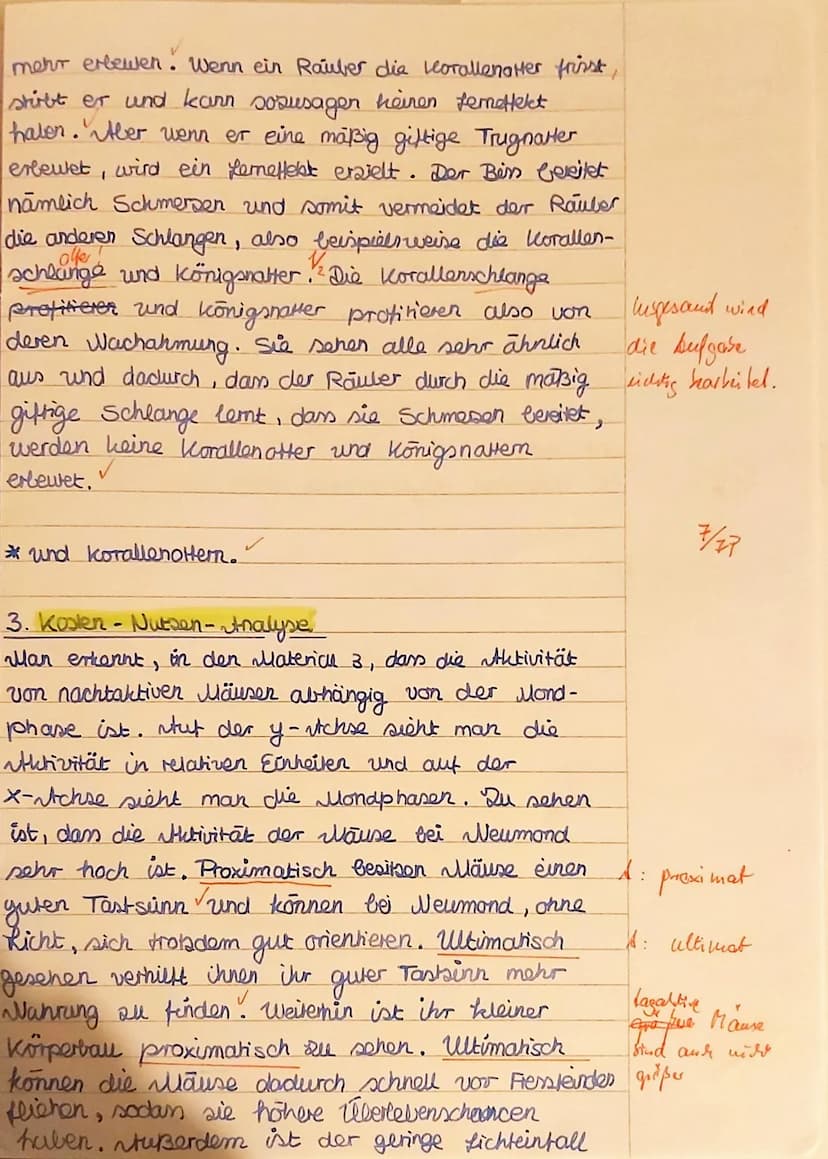 mehr erbeuten. Wenn ein Räuber die Korallenotter frisst,
stirbt er und kann sozusagen keinen Lerneffekt
haben. Aber wenn er eine mäßig giftige Trugnatter
erbeutet, wird ein Lerneffekt erzielt. Der Biss bereitet
nämlich Schmerzen und somit vermeidet der Räuber
die anderen Schlangen, also beispielsweise die Korallen-
otter!
schlange und Königsnatter. 1/2 Die Korallenschlange
profitieren und Königsnatter profitieren also von
Insgesamt wird
deren Nachahmung. Sie sehen alle sehr ähnlich
die Aufgabe
aus und dadurch, dass der Räuber durch die mäßig
richtig bearbeitet.
giftige Schlange lernt, dass sie Schmerzen bereitet,
werden keine Korallenotter und Königsnattern
erbeutet.
7/7P
* und Korallenottern.
3. Kosten-Nutzen-Analyse
Man erkennt, in den Material 3, dass die Aktivität
von nachtaktiven Mäusen abhängig von der Mond-
phase ist. Auf der y-Achse sieht man die
Aktivität in relativen Einheiten und auf der
x-Achse sieht man die Mondphasen. Zu sehen
ist, dass die Aktivität der Mäuse bei Neumond
sehr hoch ist. Proximatisch besitzen Mäuse einen
A: proximat
guten Tastsinn und können bei Neumond, ohne
Licht, sich trotzdem gut orientieren. Ultimatisch
A: ultimat
gesehen verhilft ihnen ihr guter Tastsinn mehr
Nahrung zu finden. Weiterhin ist ihr kleiner
tagaktive
Mäuse
Körperbau proximatisch zu sehen. Ultimatisch
sind auch nicht
können die Mäuse dadurch schnell vor Fressfeinden
größer
fliehen, sodass sie höhere Überlebenschancen
haben. Außerdem ist der geringe Lichteinfall